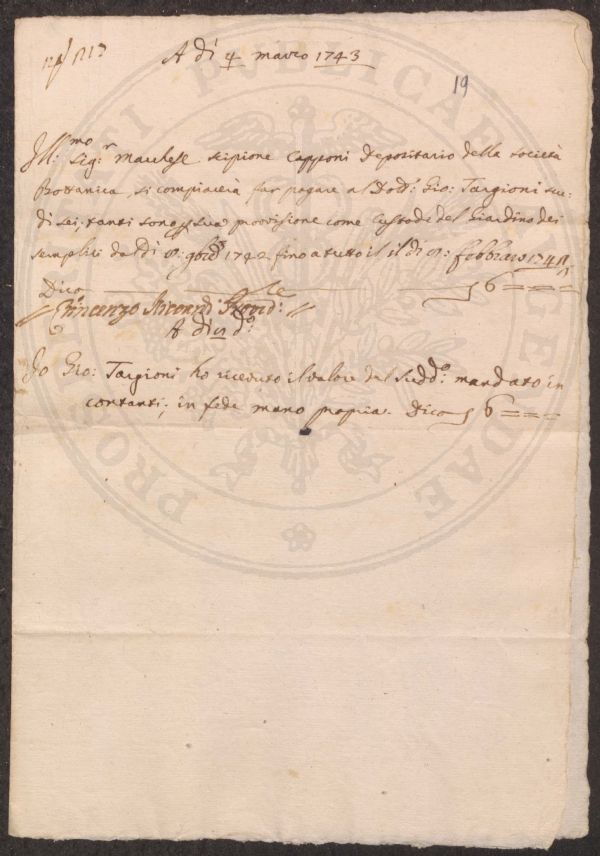 A dì 4 marzo 1743
19
Ill:mo Sig:r Marchese Scipione Capponi Depositario della Società
Bottanica, si compiacerà far pagare al Dott: Gio: Targioni scu-
di sei, tanti sono p sua provisione come Custode del Giardino dei
semplici dal dì p:o 9bre 1742 fino a tutto il il dì febbraio 174
Dico 6 = = =
Vincenzo Provid:
A dì d:o
Io Gio: Targioni ho riceduto il valore del Sudd:o mandato in
contanti; in fede mano propria. Dico 6 = = =
PROSPERITATI PVBLICAE AVGENDAE